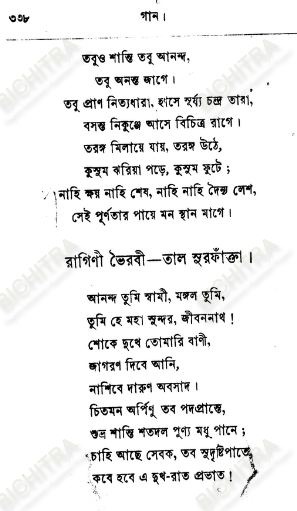 ৩৩৮
গান।
তবুও শান্তি তবু আনন্দ,
তবু অনন্ত জাগে।
তবু প্রাণ নিত্যধারা, হাসে সূর্য্য চন্দ্র তারা,
বসন্ত নিকুঞ্জে আসে বিচিত্র রাগে।
তরঙ্গ মিলায়ে যায়, তরঙ্গ উঠে,
কুসুম ঝরিয়া পড়ে, কুসুম ফুটে;
নাহি ক্ষয় নাহি শেষ, নাহি নাহি দৈন্য লেশ,
সেই পূর্ণতার পায়ে মন স্থান মাগে।
রাগিণী ভৈরবী—তাল সুরফাঁক্তা।
আনন্দ তুমি স্বামী, মঙ্গল তুমি,
তুমি হে মহা সুন্দর, জীবননাথ!
শোকে দুখে তোমারি বাণী,
জাগরণ দিবে আনি,
নাশিবে দারুণ অবসাদ।
চিতমন অর্পিণু তব পদপ্রান্তে,
শুভ্র শান্তি শতদল পুণ্য মধু পানে;
চাহি আছে সেবক, তব সুদৃষ্টিপাতে,
কবে হবে এ দুখ-রাত প্রভাত!
BICHITRA